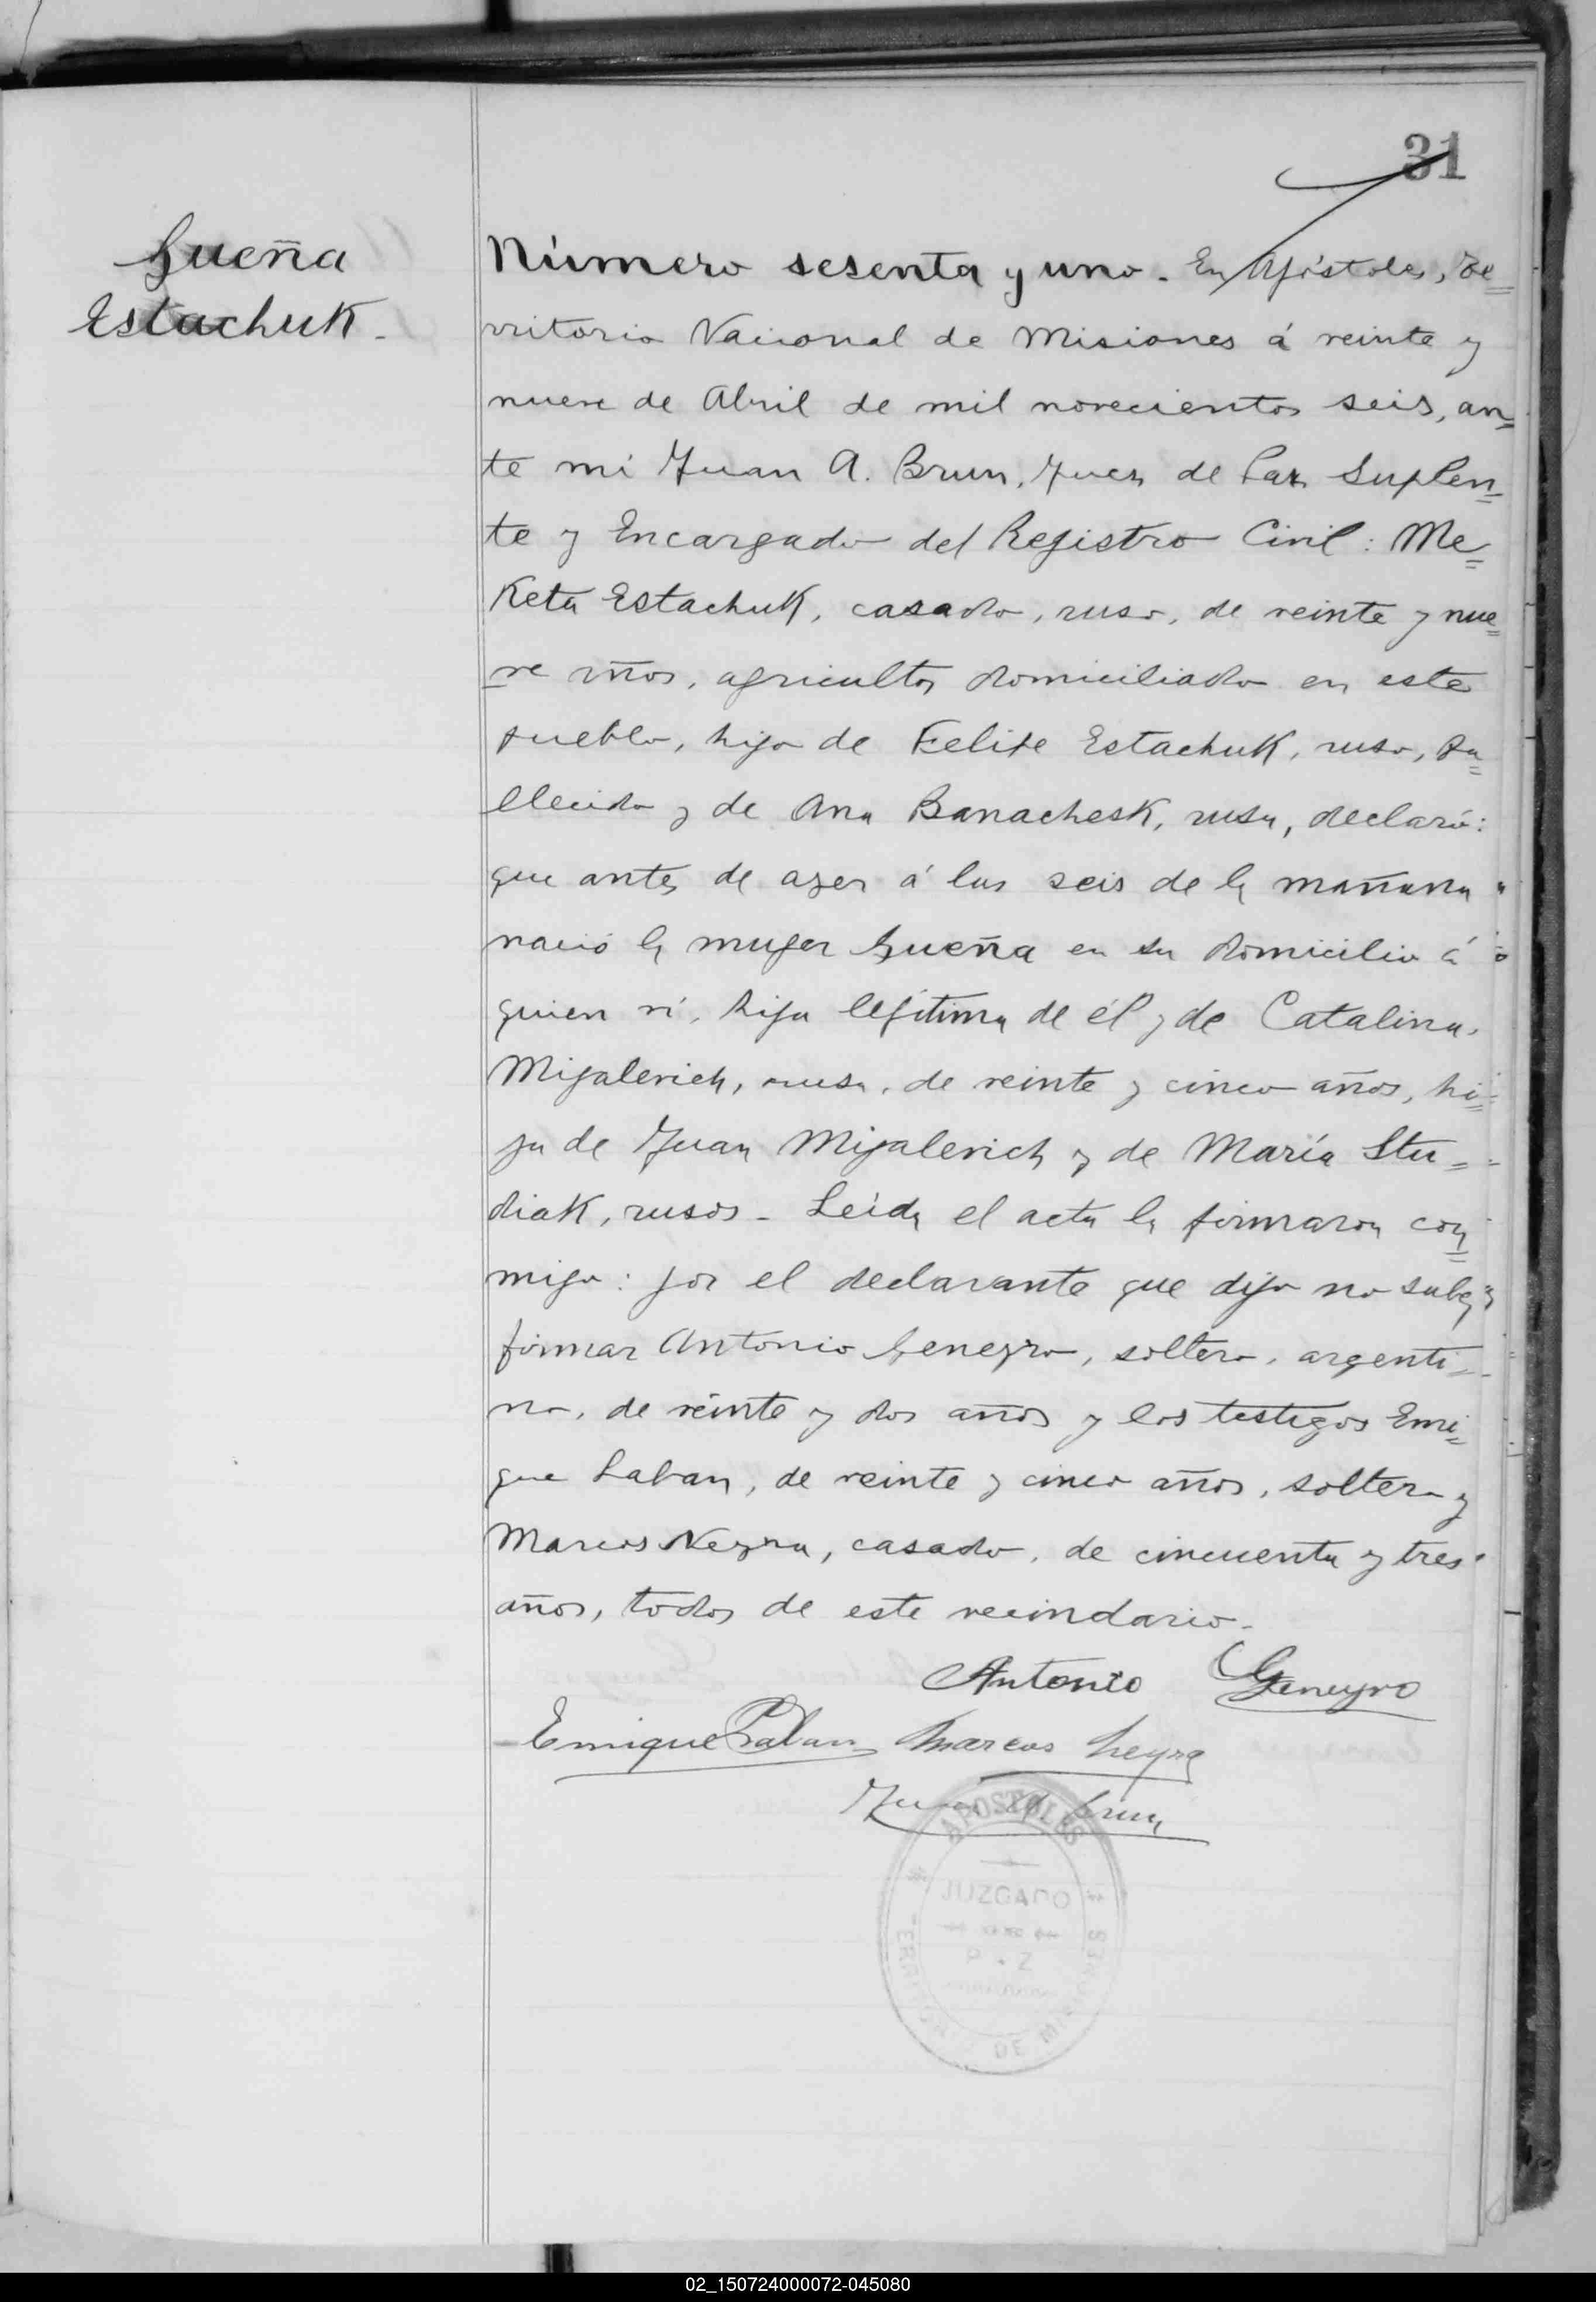 31
Gueña
Estachuk.
Número sesenta y uno. En Apóstoles, Te=
rritorio Nacional de Misiones á veinte y
nueve de Abril de mil novecientos seis, an=
te mi Juan A. Brun, Juez de Paz Suplen=
te y Encargado del Registro Civil: Me=
Keta Estachuk, casado, ruso, de veinte y nue=
ve años, agricultor domiciliado en este
pueblo, hijo de Felipe Estachuk, ruso, fa=
llecido y de Ana Banachesk, rusa, declaró:
que antes de ayer á las seis de la mañana
nació la mujer Gueña en su domicilio á
quien ví, hija legítima de él y de Catalina
Mijalevich, rusa, de veinte y cinco años, hi=
ja de Juan Mijalevich y de María Stu=
diak, rusos. Leida el acta la firmaron con
migo: por el declarante que dijo no saber
firmar Antonio Geneyro, soltero, argenti=
no, de veinte y dos años y los testigos Enri=
que Laban, de veinte y cinco años, soltero y
Marcos Neyra, casado, de cincuenta y tres
años, todos de este vecindario.
Antonio Geneyro
Enrique Marcos Neyra
Juan A. Brun
APOSTOLES
JUZGADO
P. Z
02_150724000072-045080